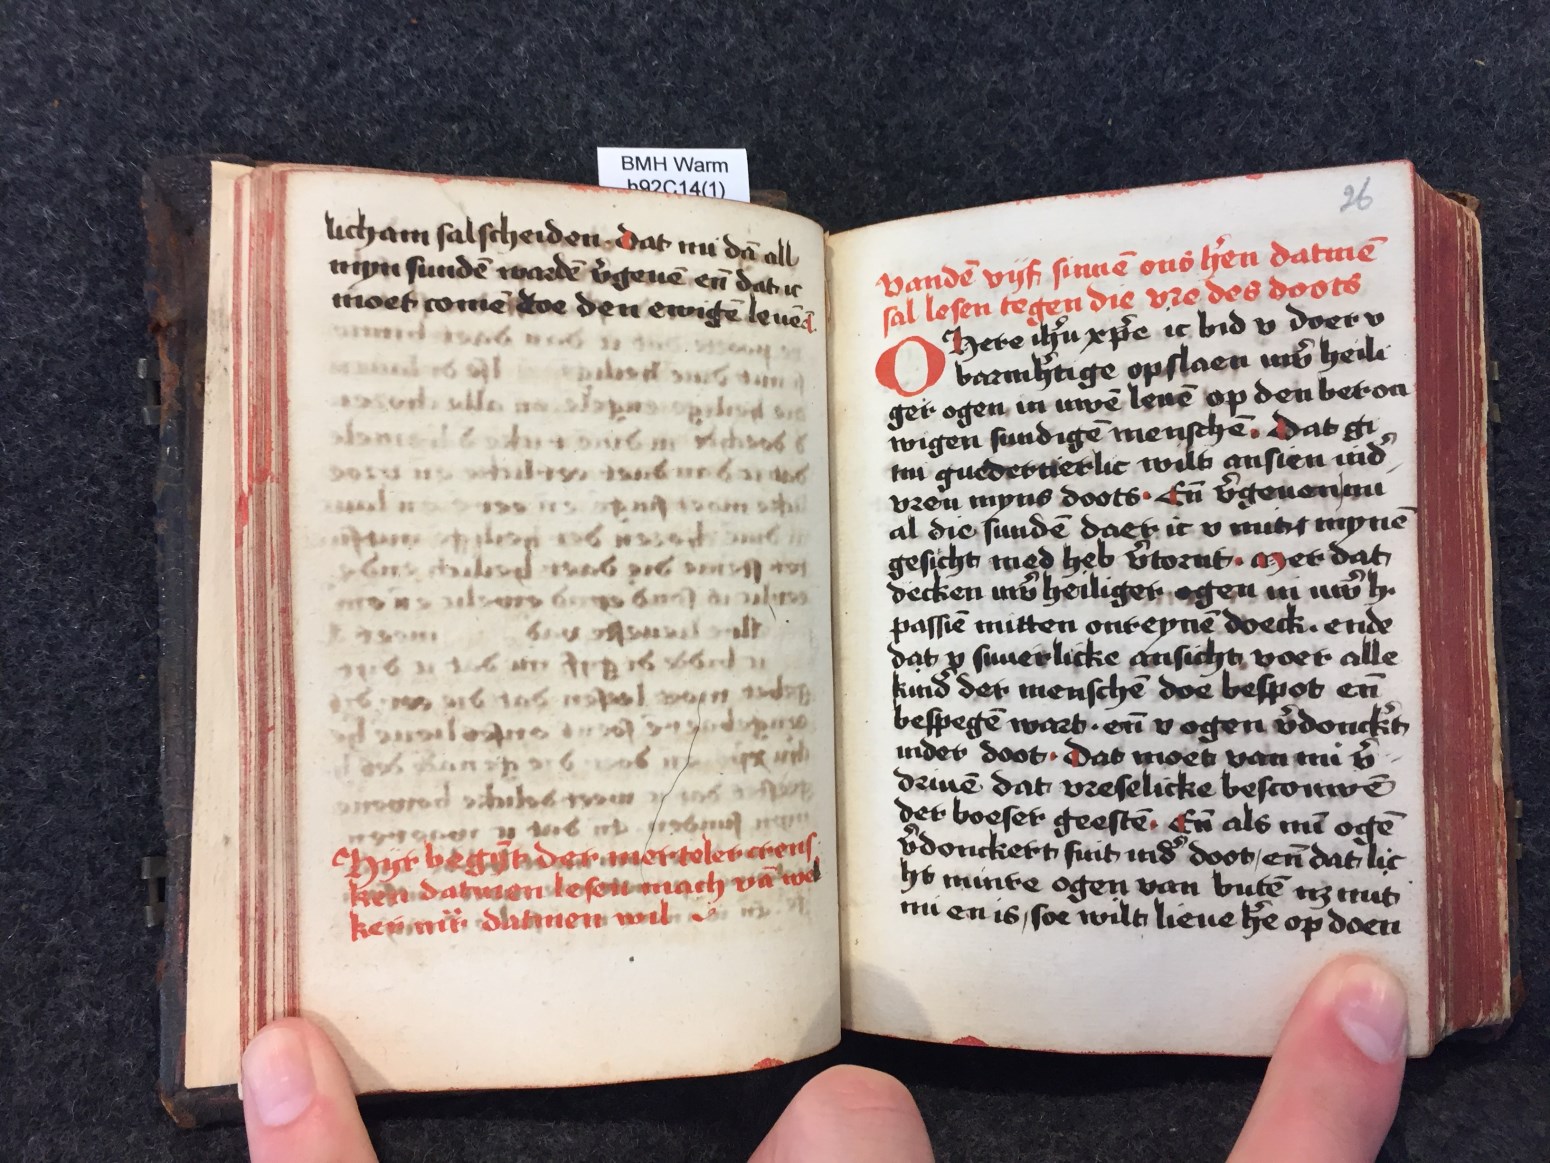 BMH Warm
h92C14(1)
licham salscheiden. Dat mi dā all
myn sundē wardē v̄geuē en̄ dat ic
moet comē toe den ewigē leuē a.
Hijr begȳt der merteler crens
ken datmen lesen mach vā wel
ker mr̄ datmen wil
26
vandē vijf sinnē ons hr̄en datmē
sal lesen tegen die vre des doots
O Here ihū xp̄e ic bid v doer v
barmh̄tige opslaen uwr̄ heili
ger ogen in uwē leuē op den beroū
wigen sundigē menschē. Dat gi
mi guedertierlic wilt ansien ind̓
vren myns doots. En̄ v̄geuen mi
al die sundē daer ic v mitt mynē
gesicht med heb v̄tornt. Mer dat
decken uwr̄ heiliger ogen in uwr̄ h.
passiē mitten onreynē doeck. ende
dat v suuerlicke ansicht voer alle
kind̓ der menschē doe bespot en̄
bespegē wart. en̄ v ogen v̄donck̓t
inder doot. Dat moet van mi v̄
driuē dat vreselicke bescouwē
der boeser geestē. En̄ als mī ogē
v̄donckert sint ind̓ doot/ en̄ dat lic
ht minre ogen van butē nz mit
mi en is/ soe wilt lieue hr̄e op doen